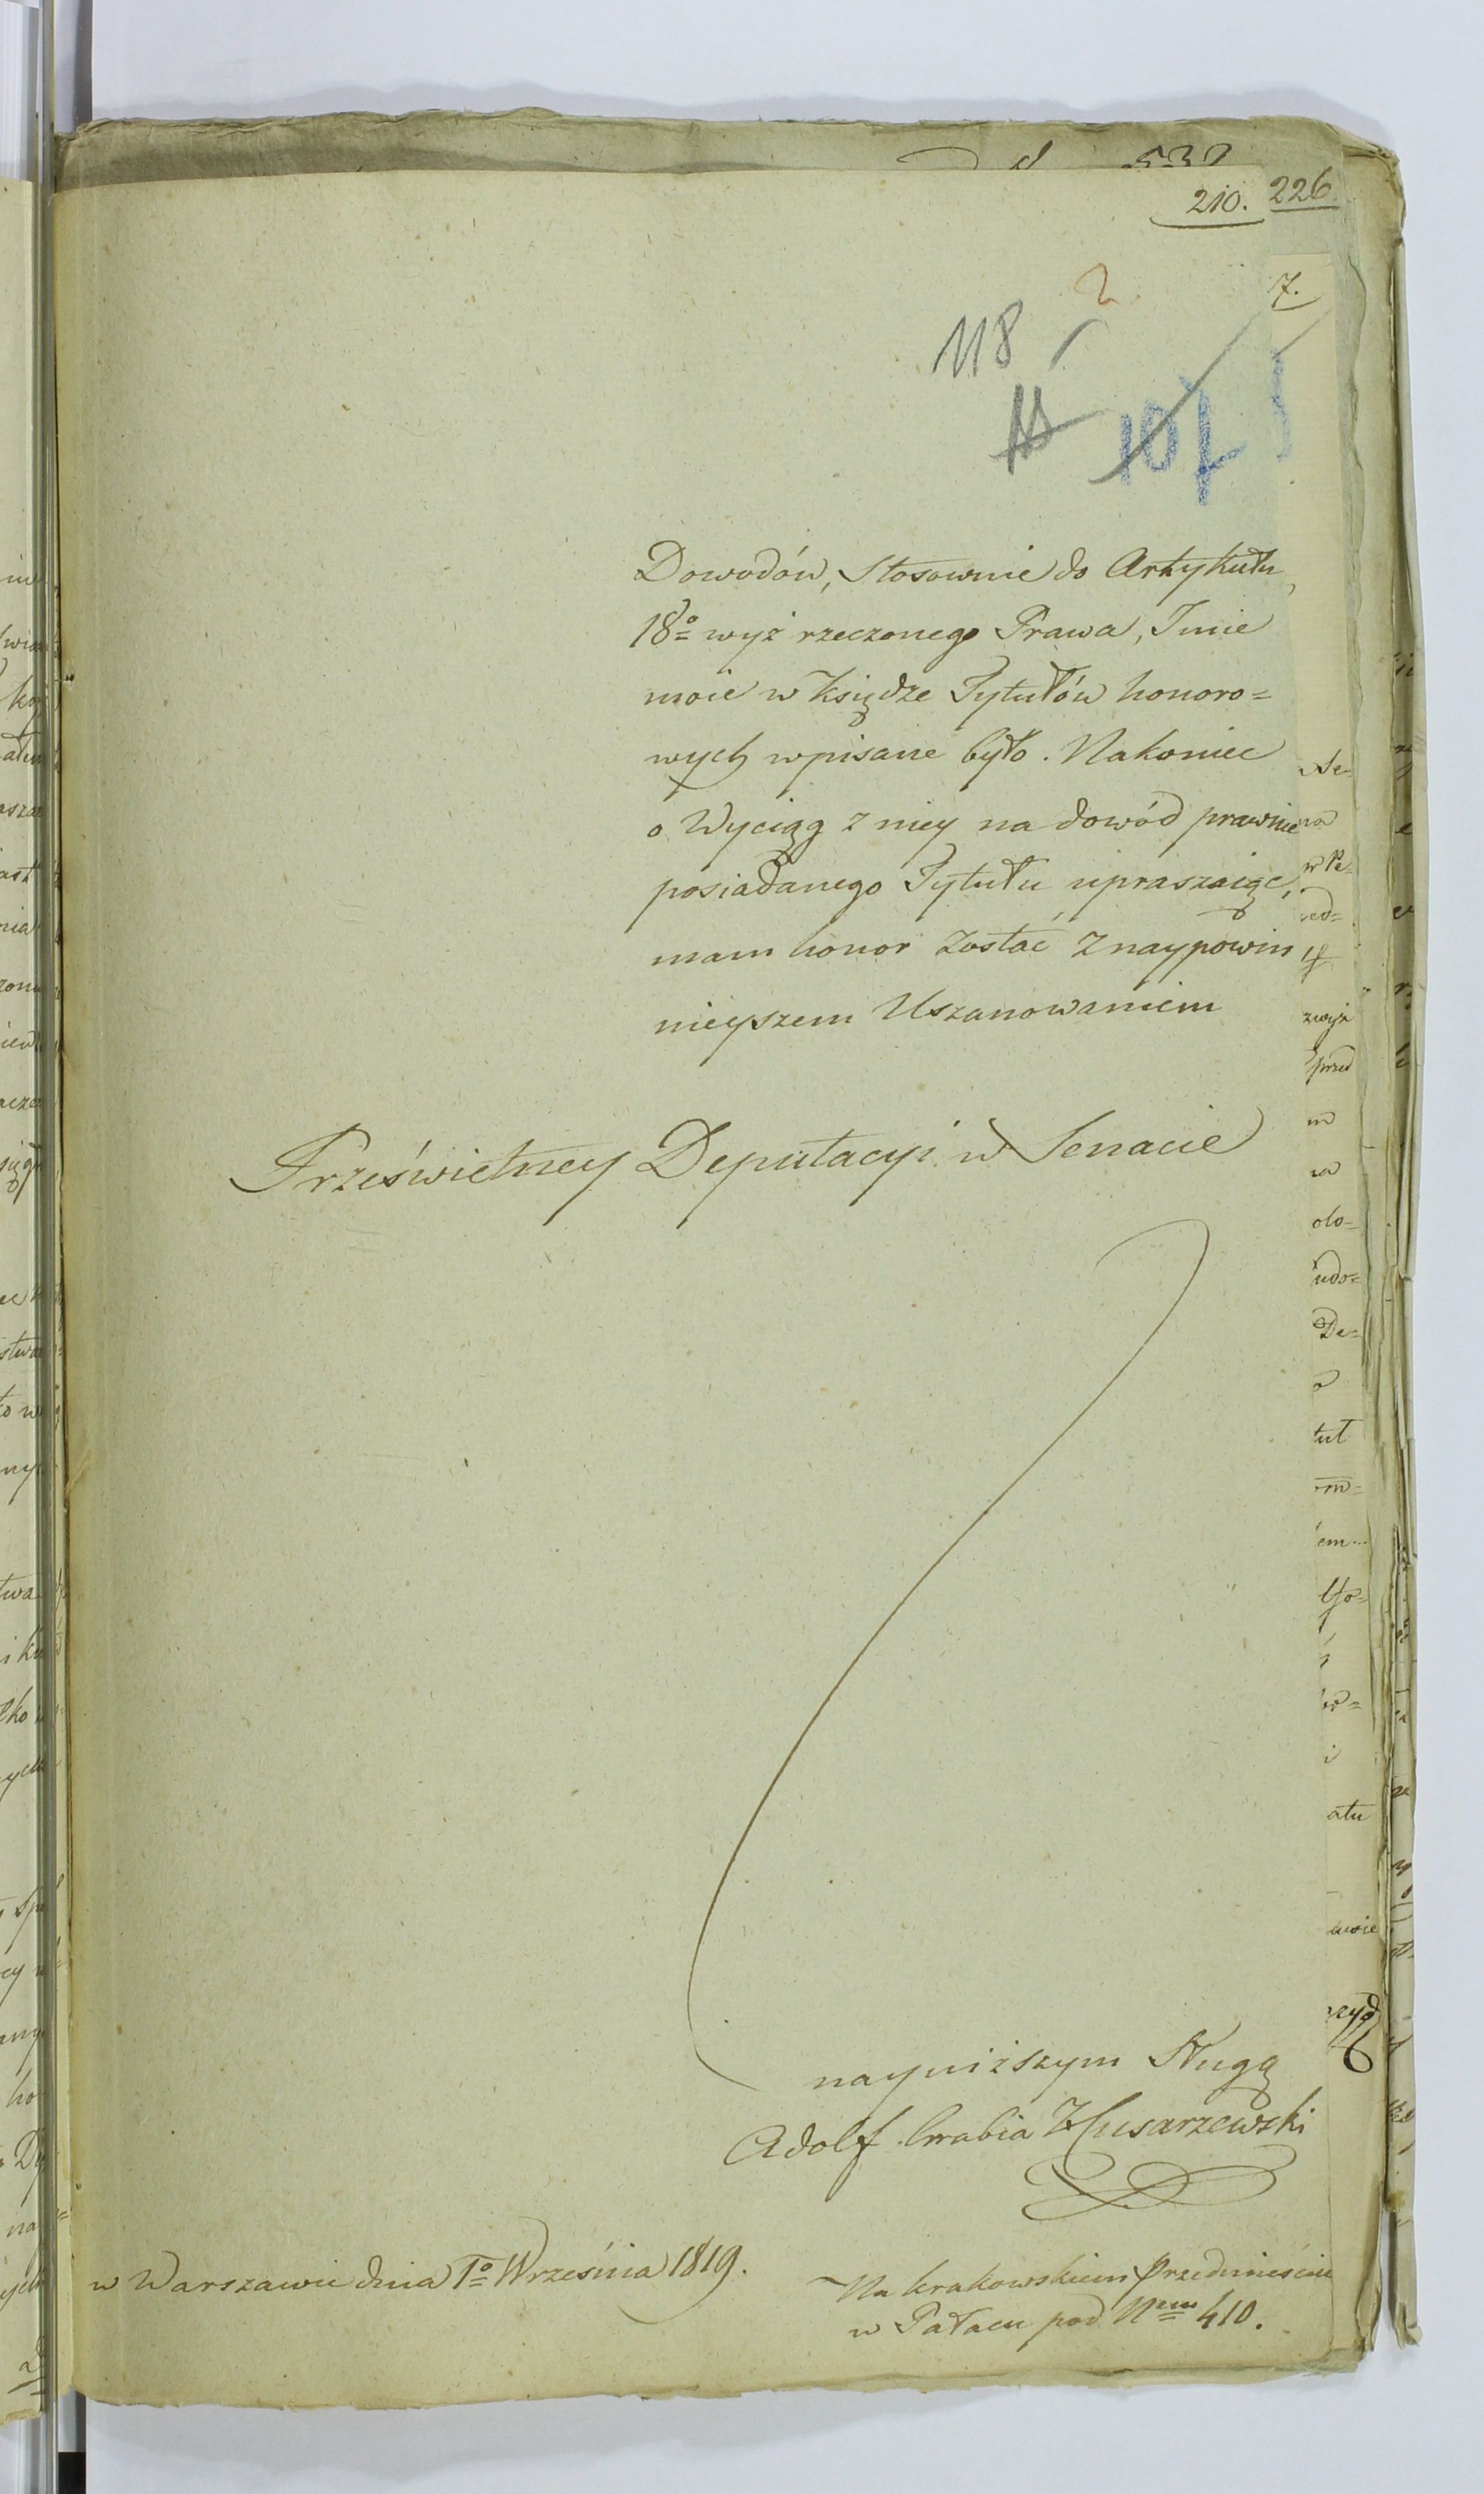 210. 226.
7.
2
118
107
Dowodów, Stosownie do Artykułu,
18º wyż rzeczonego Prawa, Imie
moie w Księdze Tytułów honoro=
wych wpisane było. Nakoniec
o Wyciąg z niey na dowód prawnie
posiadanego Tytułu upraszaiąc,
mam honor zostać z naypowin
nieyszem Uszanowaniem
Prześwietney Deputacyi w Senacie
nayniższym Sługą
Adolf hrabia Husarzewski
w Warszawie dnia 1º Września 1819.
Na krakowskiem Przedmieściu
w Pałacu pod Nem 410.